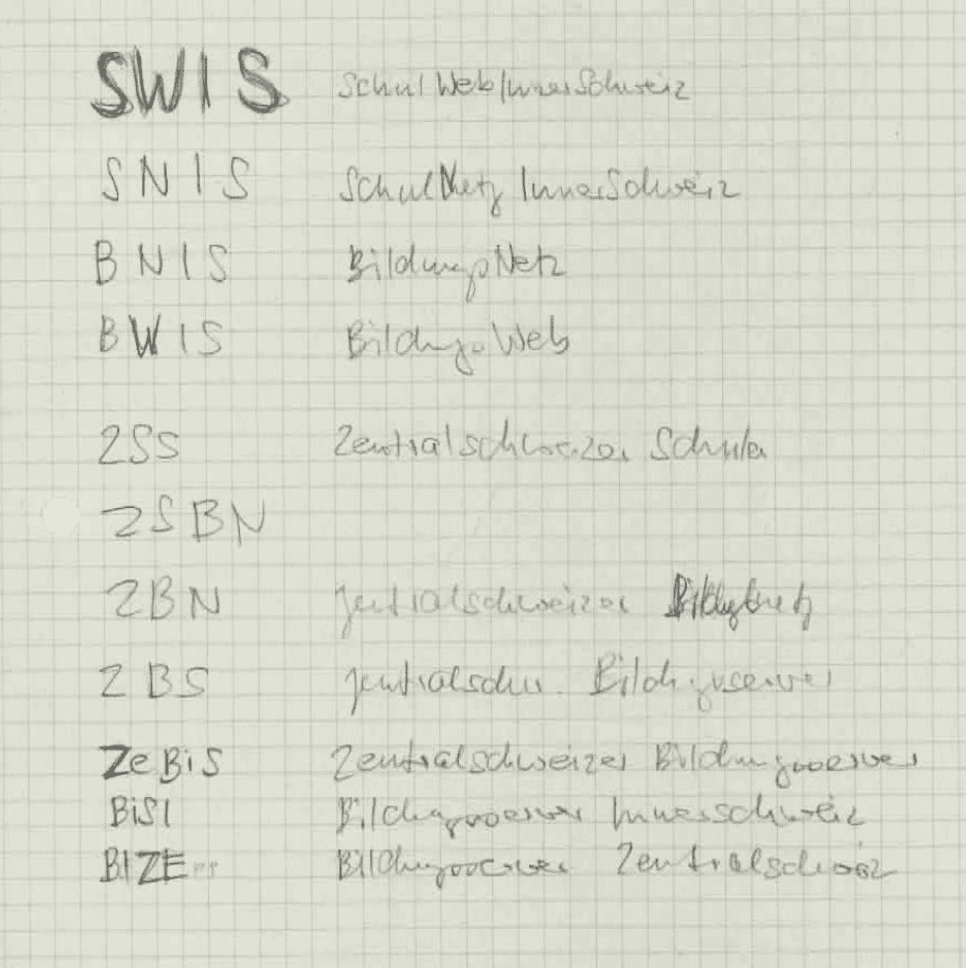 SWIS SchulWebInnerSchweiz
SNIS SchulNetz InnerSchweiz
BNIS BildungsNetz
BWIS BildungsWeb
ZSS Zentralschweizer Schulen
ZSBN
ZBN Zentralschweizer Bildungsnetz
ZBS Zentralschw. Bildungsserver
ZeBiS Zentralschweizer Bildungsserver
BiSI Bildungsserver Innerschweiz
BIZE Bildungsserver Zentralschweiz